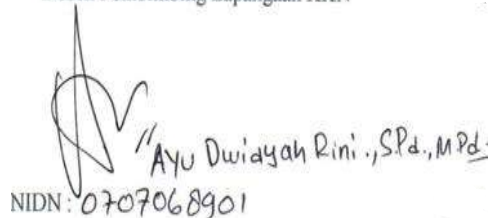 Ayu Dwidyah Rini ., S.Pd., M.Pd.
NIDN : 0707068901